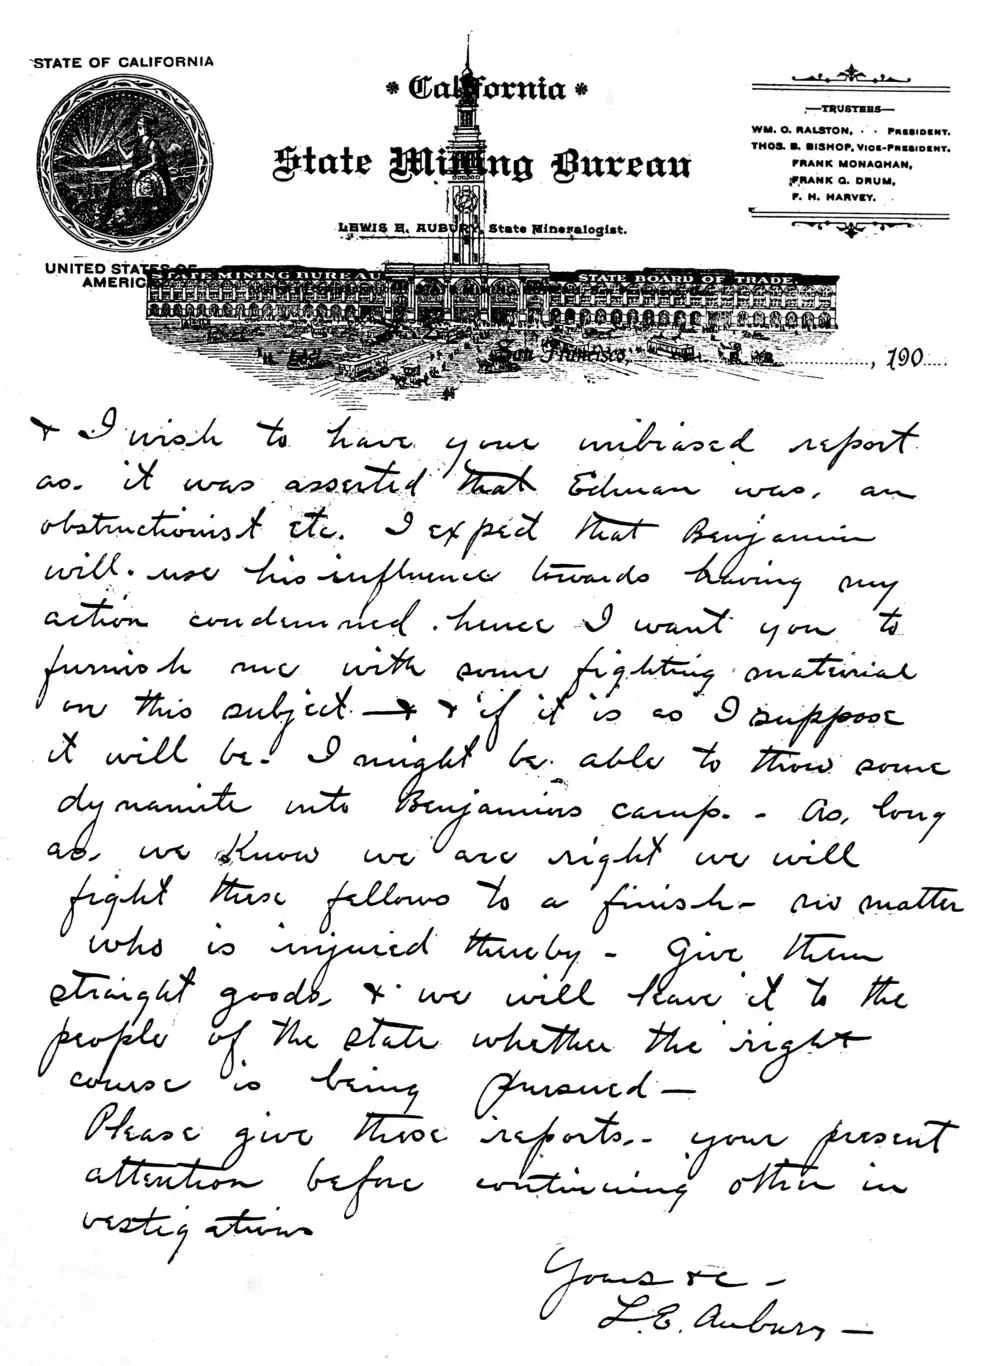 STATE OF CALIFORNIA
UNITED STATES OF
AMERICA
* California *
State Mining Bureau
LEWIS E. AUBURY, State Mineralogist.
—TRUSTEES—
WM. C. RALSTON, · · PRESIDENT.
THOS. B. BISHOP, VICE-PRESIDENT.
FRANK MONAGHAN,
FRANK G. DRUM,
F. H. HARVEY.
STATE MINING BUREAU
STATE MINING
STATE BOARD OF TRADE
San Francisco, , 190
& I wish to have your unbiased report
as it was asserted that Edman was, an
obstructionist etc. I expect that Benjamin
will use his influence towards having my
action condemned. hence I want you to
furnish me with some fighting material
on this subject — & & if it is as I suppose
it will be - I might be able to throw some
dynamite into Benjamins camp. - As, long
as, we Know we are right we will
fight these fellows to a finish - no matter
who is injured thereby - Give them
straight goods, & we will leave it to the
people of the state whether the right
course is being pursued —
Please give these reports. - your present
attention before continuing other in
vestigations
Yours &c -
L.E. Aubury —